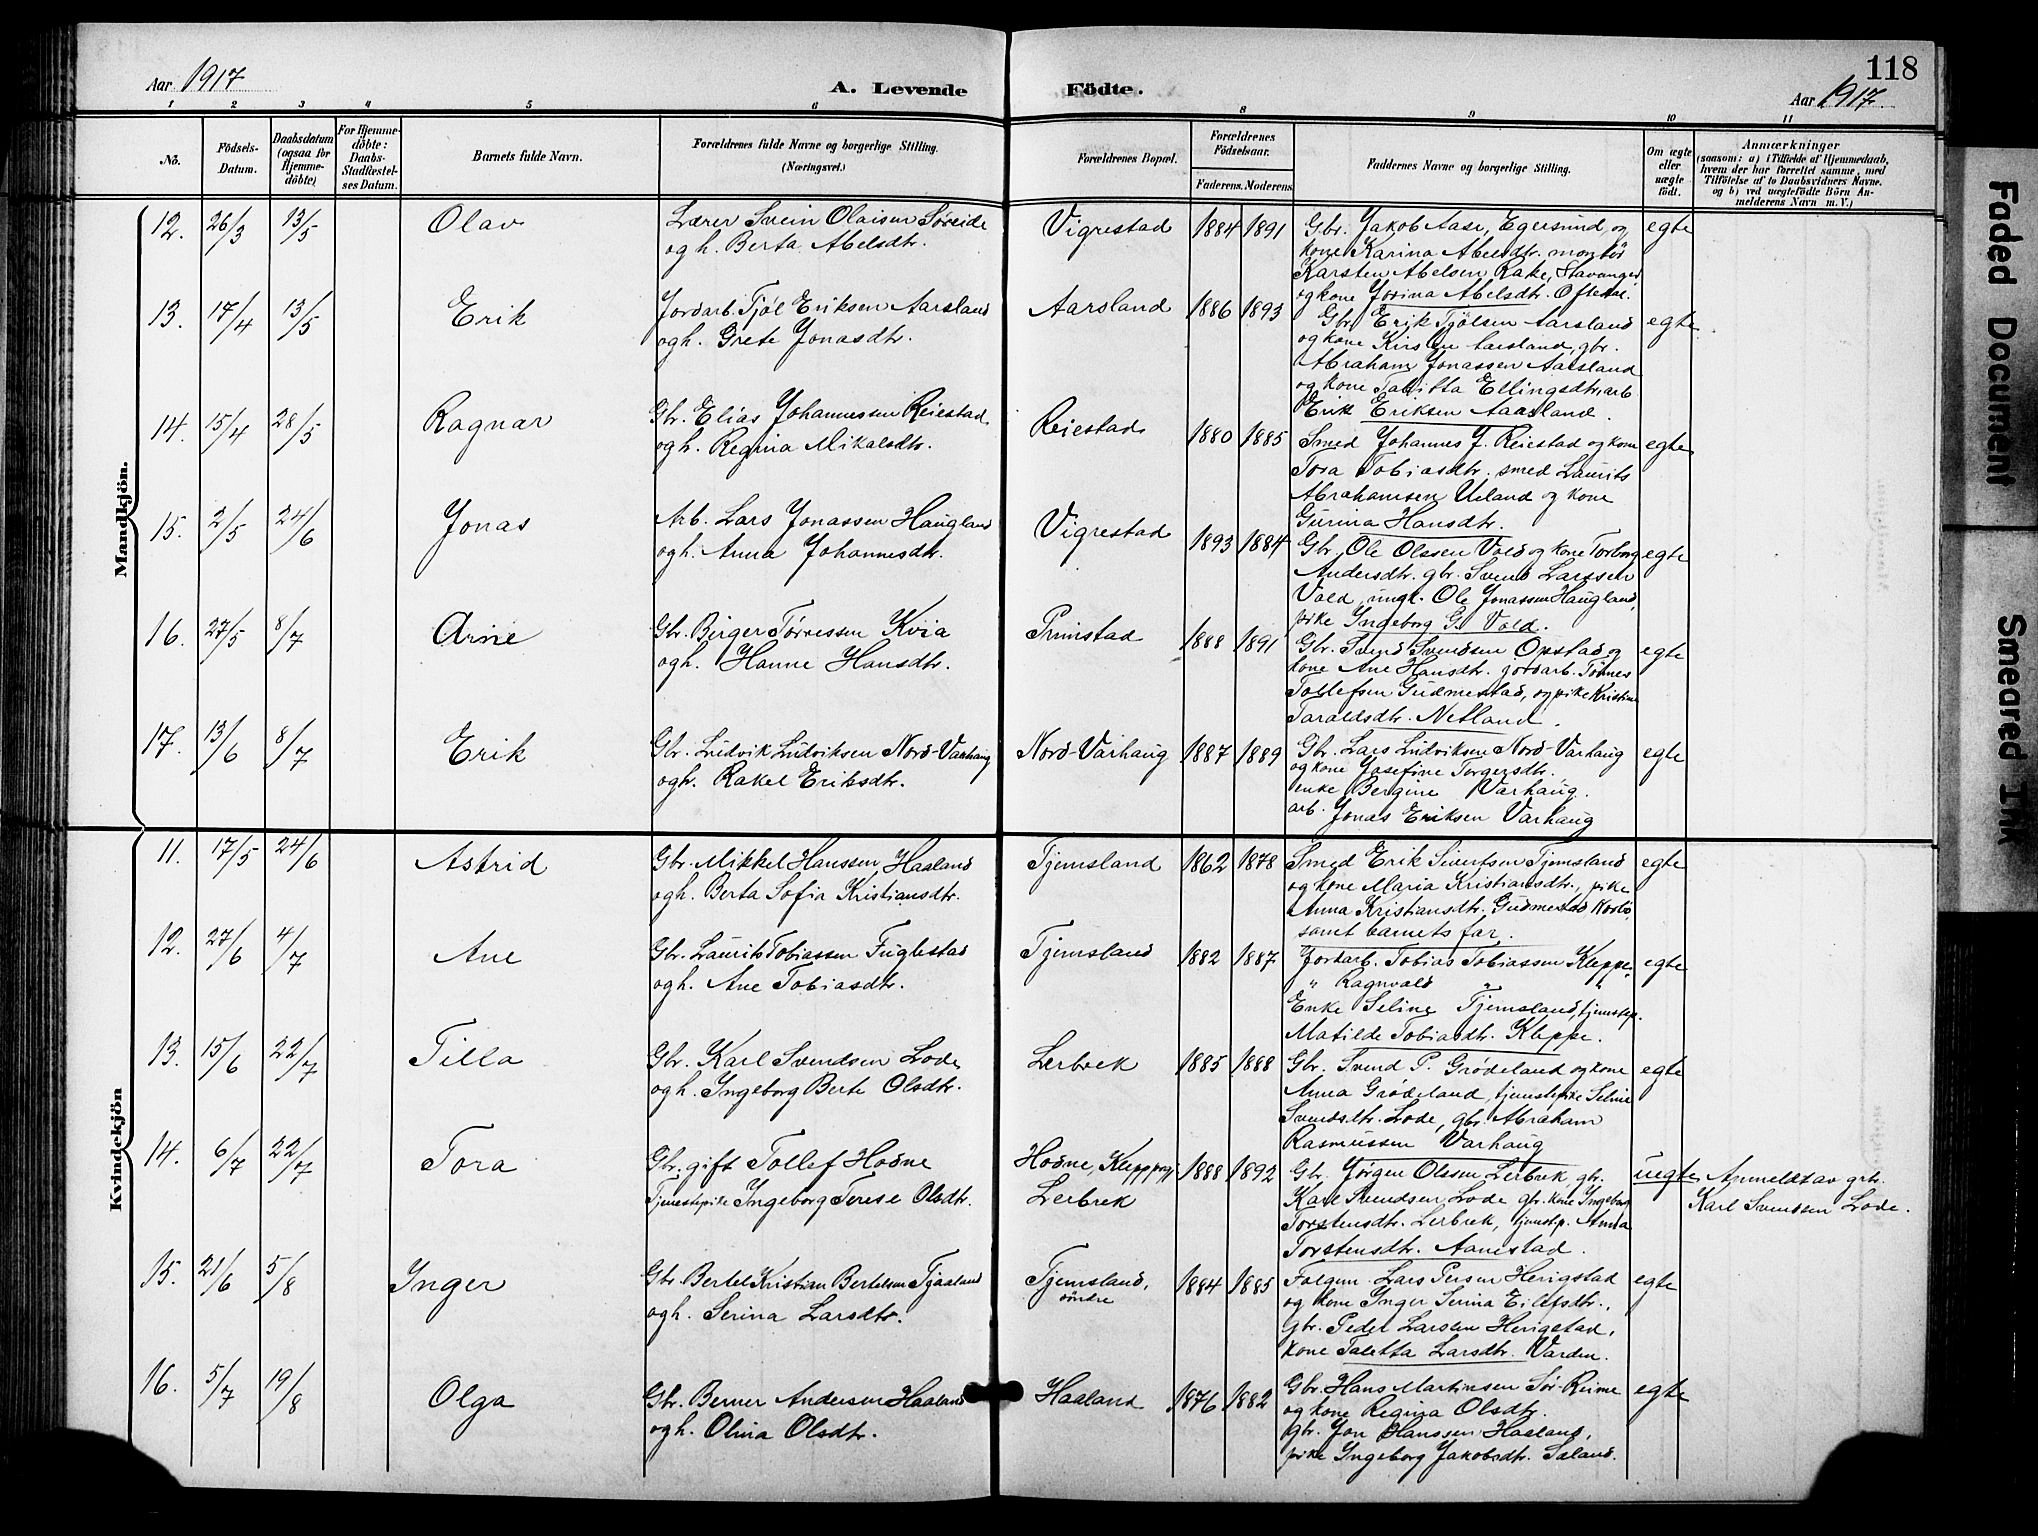 118
Aar 1917
A. Levende Födte.
Aar 1917.
1 2 3 4 5 6 8 9 10 11
No.
Födsels-Datum.
Daabsdatum (ogsaa for Hjemme-döbte)
For Hjemme-döbte: Daabs-Stadfæstel-ses Datum.
Barnets fulde Navn.
Forældrenes fulde Navne og borgerlige Stilling. (Næringsvei.)
Forældrenes Bopæl.
Forældrenes Födselsaar.
Faderens. Moderens.
Faddernes Navne og borgerlige Stilling.
Om ægte eller uægte födt.
Anmærkninger
(saasom: a) i Tilfælde af Hjemmedaab,
hvem der har forrettet samme, med
Tilföielse af to Daabsvidners Navne.
og b) ved uægtefödte Börn An-
melderens Navn m. V.)
Mandkjön.
12. 26/3 13/5 Olav
Lærer Svein Olaisen Søreide
og h. Berta Abelsdtr.
Vigrestad 1884 1891
Gbr. Jakob Aase, Egersund, og
kone Karina Abelsdtr. montør
Karsten Abelsen Rake, Stavanger
og kone Josina Abelsdtr. Oftedal.
egte
13. 17/4 13/5 Erik
Jordarb. Tjøl Eriksen Aarsland
og h. Grete Jonasdtr.
Aarsland 1886 1893
Gbr. Erik Tjølsen Aarsland
og kone Kirsten Aarsland, gbr.
Abraham Jonassen Aarsland
og kone Tabitta Ellingsdtr, arb.
Erik Eriksen Aarsland.
egte
14. 15/4 28/5 Ragnar
Gbr. Elias Johannessen Reiestad
og h. Regina Mikalsdtr.
Reiestad 1880 1885
Smed Johannes J. Reiestad og kone
Tora Tobiasdtr, smed Laurits
Abrahamsen Ueland og kone
Gurina Hansdtr.
egte
15. 2/5 24/6 Jonas
Arb. Lars Jonassen Haugland
og h. Anna Johannesdtr.
Vigrestad 1893 1884
Gbr. Ole Olssen Vold og kone Torborg
Andersdtr. gbr. Svend Larssen
Vold, ungk. Ole Jonassen Haugland,
pike Ingeborg G. Vold.
egte
16. 27/5 8/7 Arne
Gbr. Birger Tørressen Kvia
og h. Hanne Hansdtr.
Prinstad 1888 1891
Gbr. Svend Svendsen Opstad og
kone Ane Hansdtr. jordarb. Tønnes
Tollefsen Gudmestad, og pike Kristine
Taraldsdtr. Netland.
egte
17. 13/6 8/7 Erik
Gbr. Ludvik Ludviksen Nord-Varhaug
og h. Rakel Eriksdtr.
Nord-Varhaug 1887 1889
Gbr. Lars Ludviksen Nord-Varhaug
og kone Josefine Torgersdtr.
enke Bergine Varhaug.
arb. Jonas Eriksen Varhaug
egte
Kvindekjön
11. 17/5 24/6 Astrid
Gbr. Mikkel Hanssen Haaland
og h. Berta Sofia Kristiansdtr.
Tjemsland 1862 1878
Smed Erik Sivertsen Tjemsland
og kone Maria Kristiansdtr., pike
Anna Kristiansdtr. Gudmestad Nærbø,
samt barnets far.
egte
12. 27/6 4/7 Ane
Gbr. Laurits Tobiassen Fuglestad
og h. Ane Tobiasdtr.
Tjemsland 1882 1887
Jordarb. Tobias Tobiassen Kleppe,
" Ragnvald " "
Enke Seline Tjemsland, tjenstep.
Matilde Tobiasdtr. Kleppe.
egte
13. 15/6 22/7 Tilla
Gbr. Karl Svendsen Lode
og h. Ingeborg Berte Olsdtr.
Lerbrek 1885 1888
Gbr. Svend P. Grødeland og kone
Anna Grødeland, tjenstepike Seline
Svendsdtr. Lode, gbr. Abraham
Rasmussen Varhaug
egte
14. 6/7 22/7 Tora
Gbr. gift Tollef Hodne
Tjenestepike Ingeborg Terese Olsdtr.
Hodne, Klepp
Lerbrek
1888 1892
Gbr. Jørgen Olssen Lerbrek, gbr.
Karl Svendsen Lode, gbr. kone Ingeborg
Torstensdtr. Lerbrek, tjenstep. Anna
Torstensdtr. Aanestad.
uegte
Anmeldt av grb.
Karl Svendsen Lode.
15. 21/6 5/8 Inger
Gbr. Bertel Kristian Bertelsen Tjaaland
og h. Serina Larsdtr.
Tjemsland,
søndre
1884 1885
Folgem. Lars Persen Herigstad
og kone Inger Serina Eilefsdtr.,
gbr. Peder Larsen Herigstad,
kone Taletta Larsdtr. Varden.
egte
16. 5/7 19/8 Olga
Gbr. Berner Andersen Haaland
og h. Olina Olsdtr.
Haaland 1876 1882
Gbr. Hans Martinsen Sør-Reime
og kone Regina Olsdtr.
gbr. Jon Hanssen Haaland,
pike Ingeborg Jakobsdtr. Saland.
egte
Faded Document
Smeared Ink